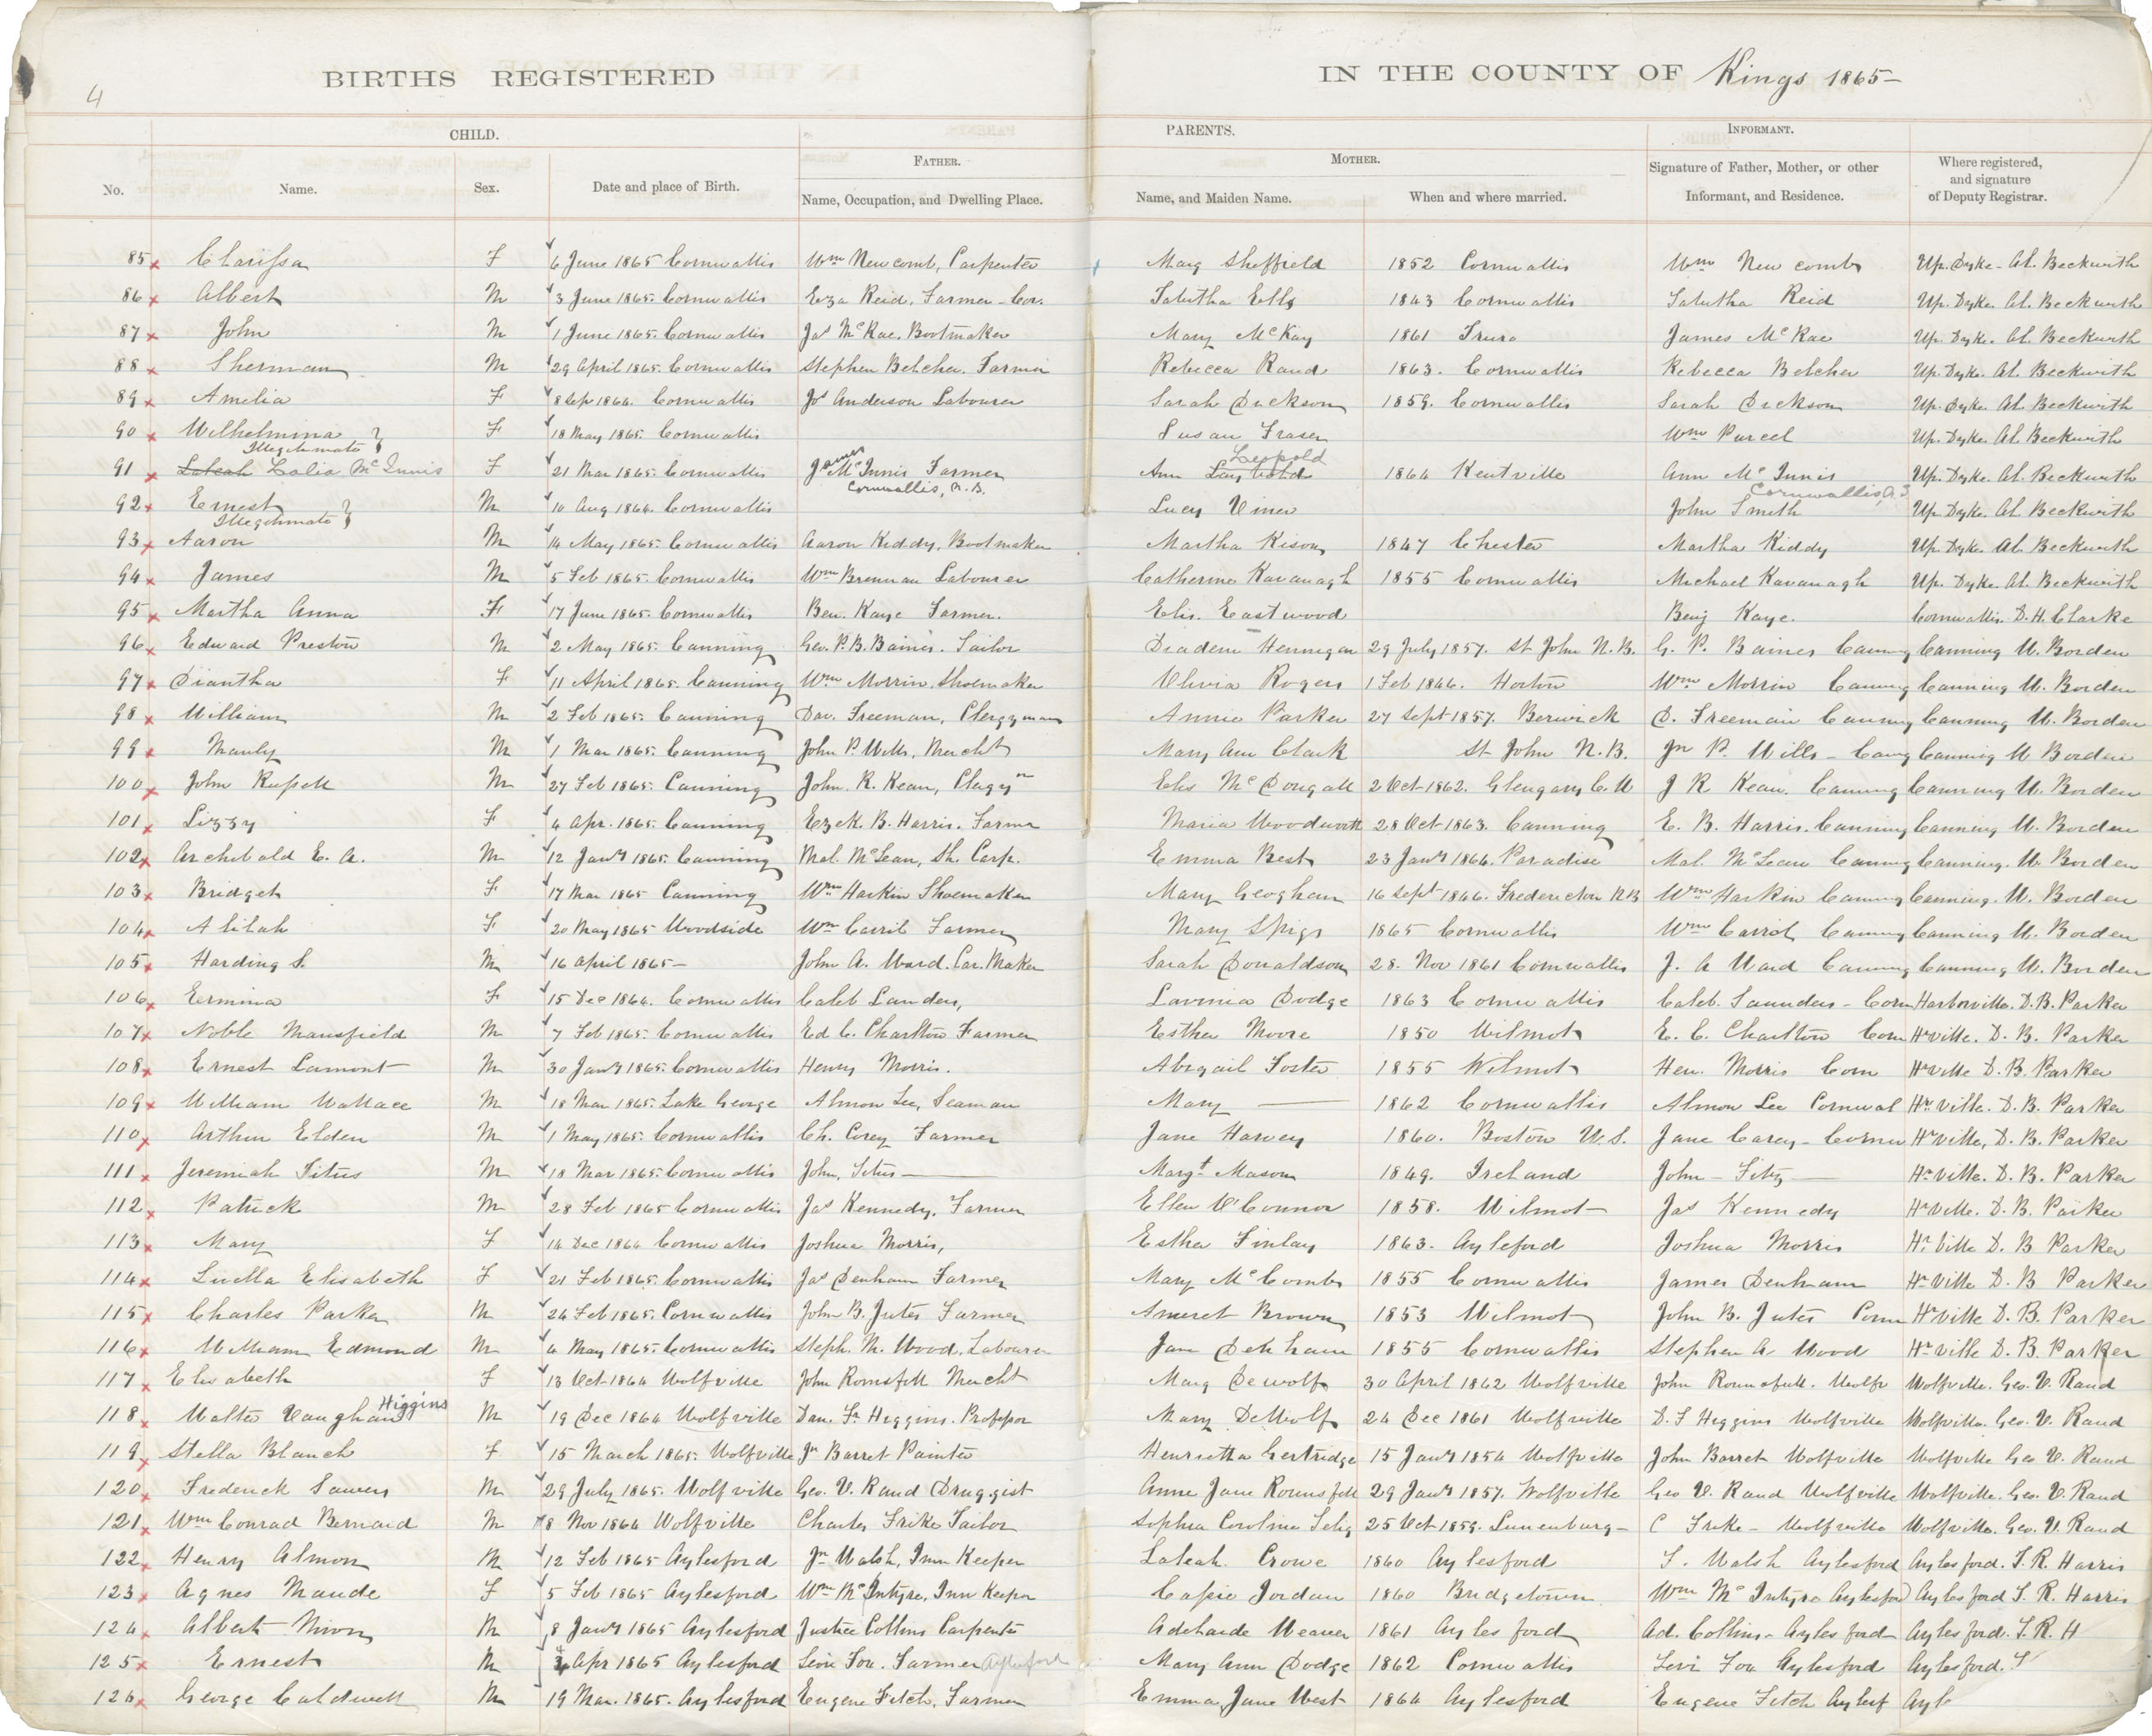 4
BIRTHS REGISTERED IN THE COUNTY OF Kings 1865-
CHILD. PARENTS. INFORMANT.
FATHER. MOTHER.
No. Name. Sex. Date and place of Birth. Name, Occupation, and Dwelling Place. Name, and Maiden Name. When and where married. Signature of Father, Mother, or other Informant, and Residence. Where registered, and signature of Deputy Registrar.
85 Clarissa F 6 June 1865 Cornwallis Wm Newcomb, Carpenter Marg Sheffield 1852 Cornwallis Wm Newcomb Up. Dyke. Al. Beckwith
86 Albert M 3 June 1865. Cornwallis Eza Reid, Farmer-Cor. Tabitha Ells 1843 Cornwallis Tabitha Reid Up. Dyke. Al. Beckwith
87 John M 1 June 1865. Cornwallis Jas McRae. Bootmaker Mary McKay 1861 Truro James McRae Up. Dyke. Al. Beckwith
88 Sherman M 29 April 1865. Cornwallis Stephen Belcher. Farmer Rebecca Rand 1863. Cornwallis Rebecca Belcher Up. Dyke. Al. Beckwith
89 Amelia F 8 Sep 1864. Cornwallis Jos Anderson Labourer Sarah Dickson 1859. Cornwallis Sarah Dickson Up. Dyke. Al. Beckwith
90 Wilhelmina F 18 May 1865. Cornwallis Susan Fraser Wm Purcel Up. Dyke. Al. Beckwith
Illegitimate
91 Laleah Lalia McInnis F 21 Mar 1865. Cornwallis James McInnis Farmer Cornwallis, N.S. Ann Leopold 1864 Kentville Ann McInnis Cornwallis, N.S. Up. Dyke. Al. Beckwith
92 Ernest M 10 Aug 1864. Cornwallis Lucy Viner John Smith Up. Dyke. Al. Beckwith
Illegitimate
93 Aaron M 14 May 1865. Cornwallis Aaron Kiddy, Bootmaker Martha Kison 1847 Chester Martha Kiddy Up. Dyke. Al. Beckwith
94 James M 5 Feb 1865. Cornwallis Wm Brennan Labourer Catherine Kavanagh 1855 Cornwallis Michael Kavanagh Up. Dyke. Al. Beckwith
95 Martha Anna F 17 June 1865. Cornwallis Ben. Kaye Farmer. Elis. Eastwood Benj Kaye. Cornwallis. D. H. Clarke
96 Edward Preston M 2 May 1865. Canning Geo. P. B. Baines. Tailor Diadem Hennigar 29 July 1857. St John N.B. G. P. Baines Canning Canning W. Borden
97 Diantha F 11 April 1865. Canning Wm Morrin. Shoemaker Olivia Rogers 1 Feb 1846. Horton Wm Morrin Canning Canning W. Borden
98 William M 2 Feb 1865. Canning Dav. Freeman, Clergyman Annie Parker 27 Sept 1857. Berwick D. Freeman Canning Canning W. Borden
99 Manly M 1 Mar 1865. Canning John P. Wills, Mercht Mary Ann Clark St John N.B. Jn P. Wills - Cang Canning W Borden
100 John Russell M 27 Feb 1865. Canning John. R. Kean, Clergyn Elis McDougall 2 Oct 1862. Glengary C.W J R Kean. Canning Canning W. Borden
101 Lizzy F 4 Apr. 1865. Canning Ezek. B. Harris. Farmer Maria Woodworth 28 Oct 1863. Canning E. B. Harris. Canning Canning W. Borden
102 Archibald E. A. M 12 Jany 1865. Canning Mal. McLean, Sh. Carp. Emma Best 23 Jany 1864. Paradise Mal. McLean Canning Canning. W. Borden
103 Bridget F 17 Mar 1865 Canning Wm Harkin Shoemaker Mary Geogham 16 Sept 1846. Fredericton N.B Wm Harkin Canning Canning. W. Borden
104 Alilah F 20 May 1865 Woodside Wm Carril Farmer Mary Spigs 1865 Cornwallis Wm Carrol Canning Canning W. Borden
105 Harding S. M 16 April 1865- John A. Ward. Car. Maker Sarah Donaldson 28. Nov 1861 Cornwallis J. A Ward Canning Canning W. Borden
106 Ermina F 15 Dec 1864. Cornwallis Caleb Landers, Lavinia Dodge 1863 Cornwallis Caleb. Saunders - Corn Harborville. D.B. Parker
107 Noble Mansfield M 7 Feb 1865. Cornwallis Ed C. Charlton Farmer Esther Moore 1850 Wilmot E. C. Charlton Corn Hrville. D. B. Parker
108 Ernest Lamont M 30 Jany 1865. Cornwallis Henry Morris. Abigail Foster 1855 Wilmot Hen. Morris Corn Hrville D. B. Parker
109 William Wallace M 18 Mar 1865. Lake George Almon Lee, Seaman Mary 1862 Cornwallis Almon Lee Cornwal Hrville. D. B. Parker
110 Arthur Elden M 1 May 1865. Cornwallis Ch. Corey Farmer Jane Harvey 1860. Boston U.S. Jane Carey - Cornw Hrville, D. B. Parker
111 Jeremiah Titus M 18 Mar 1865. Cornwallis John, Titus Margt Mason 1849. Ireland John - Titus Hrville. D. B. Parker
112 Patrick M 28 Feb 1865 Cornwallis Jas Kennedy. Farmer Ellen O'Connor 1858. Wilmot Jas Kennedy Hrville. D. B. Parker
113 Mary F 14 Dec 1864 Cornwallis Joshua Morris, Esther Finlay 1863. Ayleford Joshua Morris Hrville D. B Parker
114 Luella Elisabeth F 21 Feb 1865. Cornwallis Jas Denham Farmer Mary McCombs 1855 Cornwallis James Denham Hrville D. B Parker
115 Charles Parker M 24 Feb 1865. Cornwallis John B. Jutes Farmer Ameret Brown 1853 Wilmot John B. Jutes Corn Hrville D. B. Parker
116 William Edmond M 4 May 1865. Cornwallis Steph. M. Wood, Labourer Jane Denham 1855 Cornwallis Stephen A Wood Hrville D. B. Parker
117 Elisabeth F 13 Oct 1864 Wolfville John Rounsfell Mercht Marg Dewolf 30 April 1862 Wolfville John Rounsfell. Wolfv Wolfville. Geo. V. Rand
118 Walter Vaughan Higgins M 19 Dec 1864 Wolfville Dan. Fr. Higgins. Professor Mary DeWolf 24 Dec 1861 Wolfville D. F Higgins Wolfville Wolfville. Geo. V. Rand
119 Stella Blanch F 15 March 1865. Wolfville Jn Barret Painter Henrietta Gertridge 15 Jany 1854 Wolfville John Barret Wolfville Wolfville Geo V. Rand
120 Frederick Sawers M 29 July 1865. Wolfville Geo. V. Rand Druggist Anne Jane Rounsfell 29 Jany 1857. Wolfville Geo V. Rand Wolfville Wolfville. Geo. V. Rand
121 Wm Conrad Bernard M 8 Nov 1864 Wolfville Charles Frike Tailor Sophia Caroline Selig 25 Oct 1859. Lunenburg- C Frike - Wolfville Wolfville. Geo. V. Rand
122 Henry Almon M 12 Feb 1865 Aylesford Jn Walsh, Inn Keeper Laleah Crowe 1860 Aylesford J. Walsh Aylesford Aylesford. T. R. Harris
123 Agnes Maude F 5 Feb 1865 Aylesford Wm McIntyre, Inn Keeper Cassie Jordan 1860 Bridgetown Wm McIntyre Aylesford Aylesford T. R. Harris
124 Albert M 8 Jany 1865 Aylesford Justice Collins Carpenter Adelaide Weaver 1861 Aylesford Ad. Collins - Aylesford Aylesford. T. R. H
125 Ernest M Apr 1865 Aylesford Levi Fox. Farmer Aylesford Mary Ann Dodge 1862 Cornwallis Levi Fox Aylesford Aylesford. T
126 George Caldwell M 19 Mar. 1865. Aylesford Eugene Fitch, Farmer Emma Jane West 1864 Aylesford Eugene Fitch Aylesf Ayle